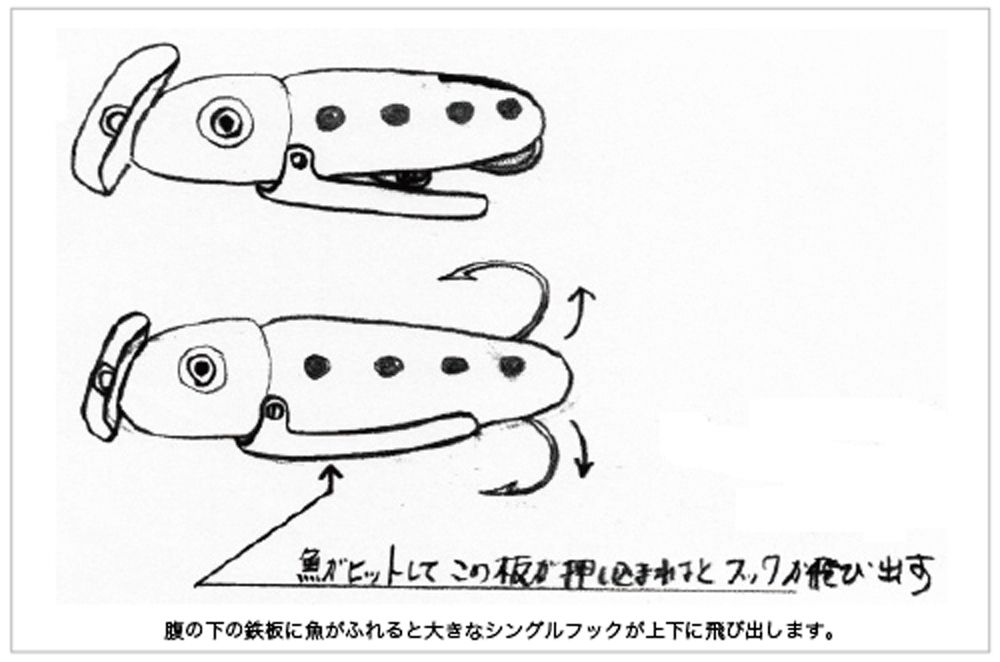 魚がヒットしてこの板が押し込まれるとフックが飛び出す
腹の下の鉄板に魚がふれると大きなシングルフックが上下に飛び出します。